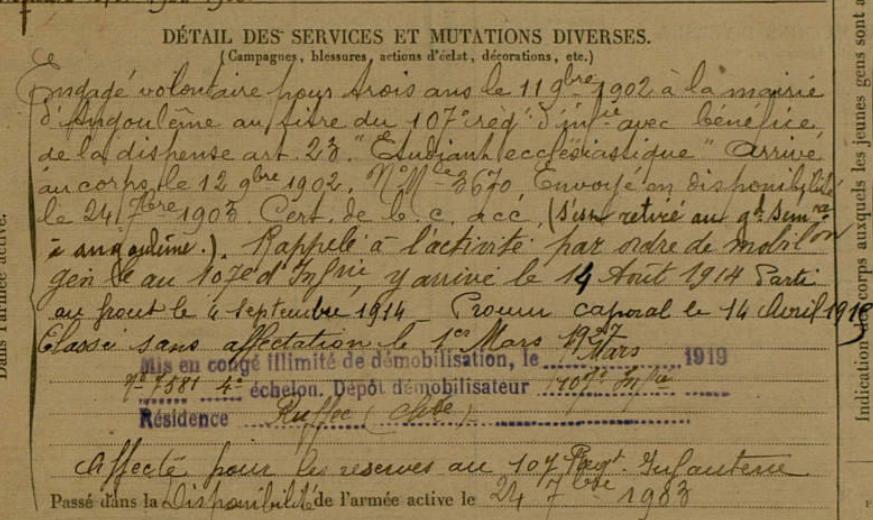 DÉTAIL DES SERVICES ET MUTATIONS DIVERSES.
(Campagnes, blessures, actions d'éclat, décorations, etc.)
Engagé volontaire pour trois ans le 11 9bre 1902 à la mairie
d'Angoulême au titre du 107e rég.t d'infie avec bénéfice
de la dispense art. 23. "Etudiant ecclésiastique" Arrivé
au corps le 12 9bre 1902. N° Mle 3670 Envoyé en disponibilité
le 24 7bre 1903. Cert. de b. c. acc. (S'est retiré au gd Sem.re
à angoulême.). Rappelé à l'activité par ordre de mobilon
génle au 107e d'Infrie, y arrive le 14 Août 1914 Parti
au front le 4 Septembre 1914 _ Promu caporal le 14 Avril 1918
Classé sans affectation le 1er Mars 1927
Mis en congé illimité de démobilisation, le Mars 1919
N° 7581 4e échelon. Dépôt démobilisateur 107e Infie
Résidence Ruffec (Chte)
Affecté pour les réserves au 107 Regt. Infanterie
Passé dans la Disponibilité de l'armée active le 24 7bre 1903
Dans l'armée active.
Indication corps auxquels les jeunes gens sont a